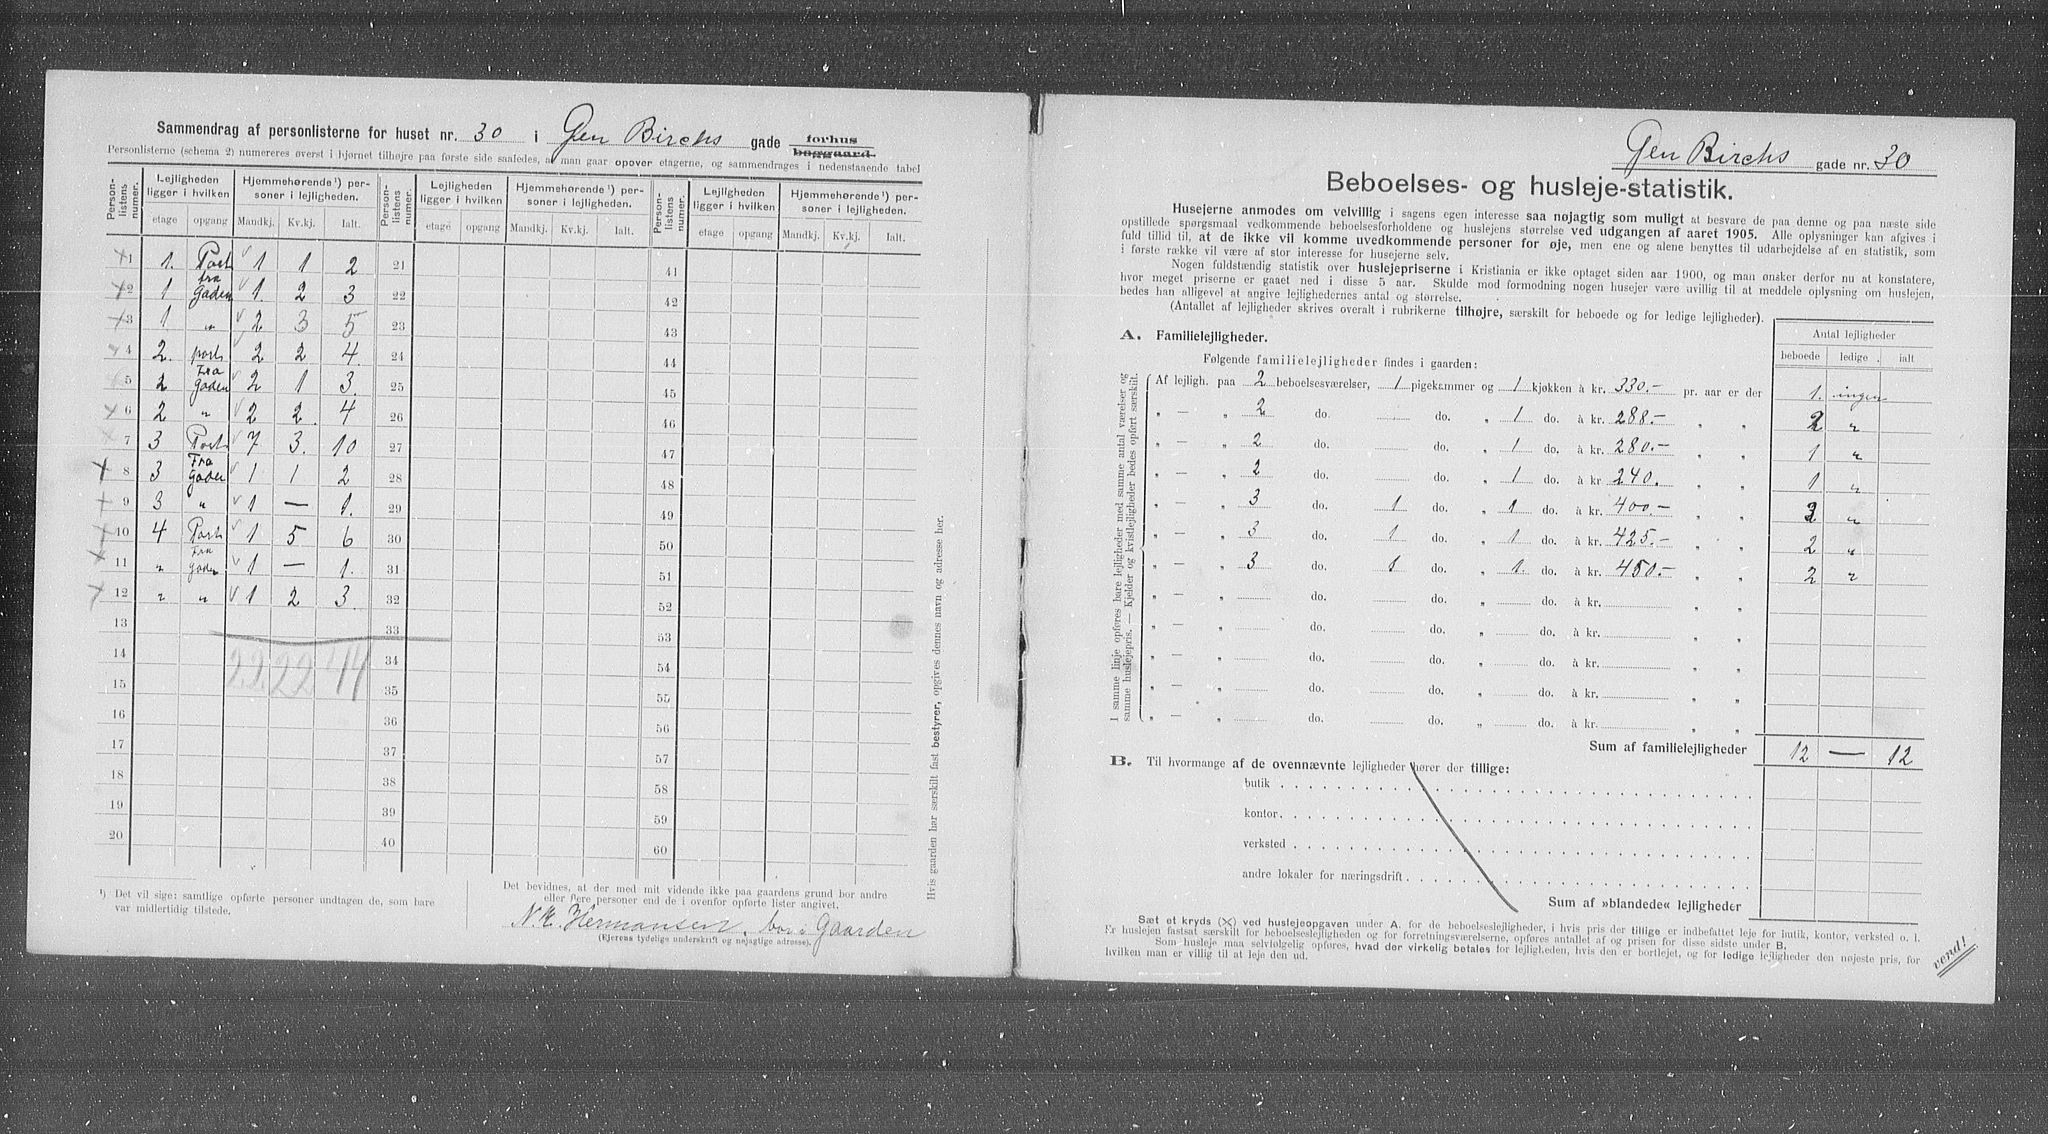 Sammendrag af personlisterne for huset nr. 30 i Gen Birchs gade forhus
baggaard.
Personlisterne (schema 2) numereres øverst i hjørnet tilhøjre paa første side saaledes, at man gaar opover etagerne, og sammendrages i nedenstaaende tabel
Person-listens numer. Lejligheden ligger i hvilken Hjemmehørende¹) personer i lejligheden. Person-listens numer. Lejligheden ligger i hvilken Hjemmehørende¹) personer i lejligheden. Person-listens numer. Lejligheden ligger i hvilken Hjemmehørende¹) personer i lejligheden.
etage opgang Mandkj. Kv.kj. Ialt. etage opgang Mandkj. Kv.kj. Ialt. etage opgang Mandkj. Kv.kj. Ialt.
1 1. Port 1 1 2 21 41
2 1 fra Gaden 1 2 3 22 42
3 1 " 2 3 5 23 43
4 2. port 2 2 4 24 44
5 2 Fra Gaden 2 1 3. 25 45
6 2 " 2 2. 4 26 46
7 3 Port 7 3. 10 27 47
8 3 Fra Gaden 1 1 2 28 48
9 3 " 1 — 1. 29 49
10 4 Port 1 5 6 30 50
11 " Fra Gaden 1 — 1. 31 51
12 " " 1 2 3 32 52
13 33 53
14 22 22 44 34 54
15 35 55
16 36 56
17 37 57
18 38 58
19 39 59
20 40 60
Hvis gaarden har særskilt fast bestyrer, opgives dennes navn og adresse her.
¹) Det vil sige: samtlige opførte personer undtagen de, som bare
var midlertidig tilstede.
Det bevidnes, at der med mit vidende ikke paa gaardens grund bor andre
eller flere personer end de i ovenfor opførte lister angivet.
N K. Hermansen. bor i Gaarden
(Ejerens tydelige underskrift og nøjagtige adresse).
Gen Birchs gade nr. 30
Beboelses- og husleje-statistik.
Husejerne anmodes om velvillig i sagens egen interesse saa nøjagtig som muligt at besvare de paa denne og paa næste side
opstillede spørgsmaal vedkommende beboelsesforholdene og huslejens størrelse ved udgangen af aaret 1905. Alle oplysninger kan afgives i
fuld tillid til, at de ikke vil komme uvedkommende personer for øje, men ene og alene benyttes til udarbejdelse af en statistik, som
i første række vil være af stor interesse for husejerne selv.
Nogen fuldstændig statistik over huslejepriserne i Kristiania er ikke optaget siden aar 1900, og man ønsker derfor nu at konstatere,
hvor meget priserne er gaaet ned i disse 5 aar. Skulde mod formodning nogen husejer være uvillig til at meddele oplysning om huslejen,
bedes han alligevel at angive lejlighedernes antal og størrelse.
(Antallet af lejligheder skrives overalt i rubrikerne tilhøjre, særskilt for beboede og for ledige lejligheder).
A. Familielejligheder.
Følgende familielejligheder findes i gaarden:
Antal lejligheder
beboede ledige ialt
I samme linje opføres bare lejligheder med samme antal værelser og
samme huslejepris. — Kjelder og kvistlejligheder bedes opført særskilt.
Af lejligh. paa 2 beboelsesværelser, 1 pigekammer og 1 kjøkken à kr. 330.- pr. aar er der 1. ingen
" — " 2 do. do. " 1 do. à kr. 288.- " " 2 "
" — " 2 do. do. " 1 do. à kr. 280.- " " 1 "
" — " 2 do. do. " 1 do. à kr. 240. " " 1 "
" — " 3 do. 1 do. " 1 do. à kr. 400.- " " 3 "
" — " 3 do. 1 do. " 1 do. à kr. 425.- " " 2 "
" — " 3 do. 1 do. " 1. do. à kr. 450.- " " 2 "
" — " do. do. " do. à kr. " "
" — " do. do. " do. à kr. " "
" — " do. do. " do. à kr. " "
" — " do. do. " do. à kr. " "
" — " do. do. " do. à kr. " "
Sum af familielejligheder 12 — 12
B. Til hvormange af de ovennævnte lejligheder hører der tillige:
butik
kontor
verksted
andre lokaler for næringsdrift
Sum af »blandede« lejligheder
Sæt et kryds (×) ved huslejeopgaven under A. for de beboelseslejligheder, i hvis pris der tillige er indbefattet leje for butik, kontor, verksted o. l.
Er huslejen fastsat særskilt for beboelseslejligheden og for forretningsværelserne, opføres antallet af og prisen for disse sidste under B.
Som husleje maa selvfølgelig opføres, hvad der virkelig betales for lejligheden, hvis den er bortlejet, og for ledige lejligheder den nøjeste pris, for
hvilken man er villig til at leje den ud.
vend!